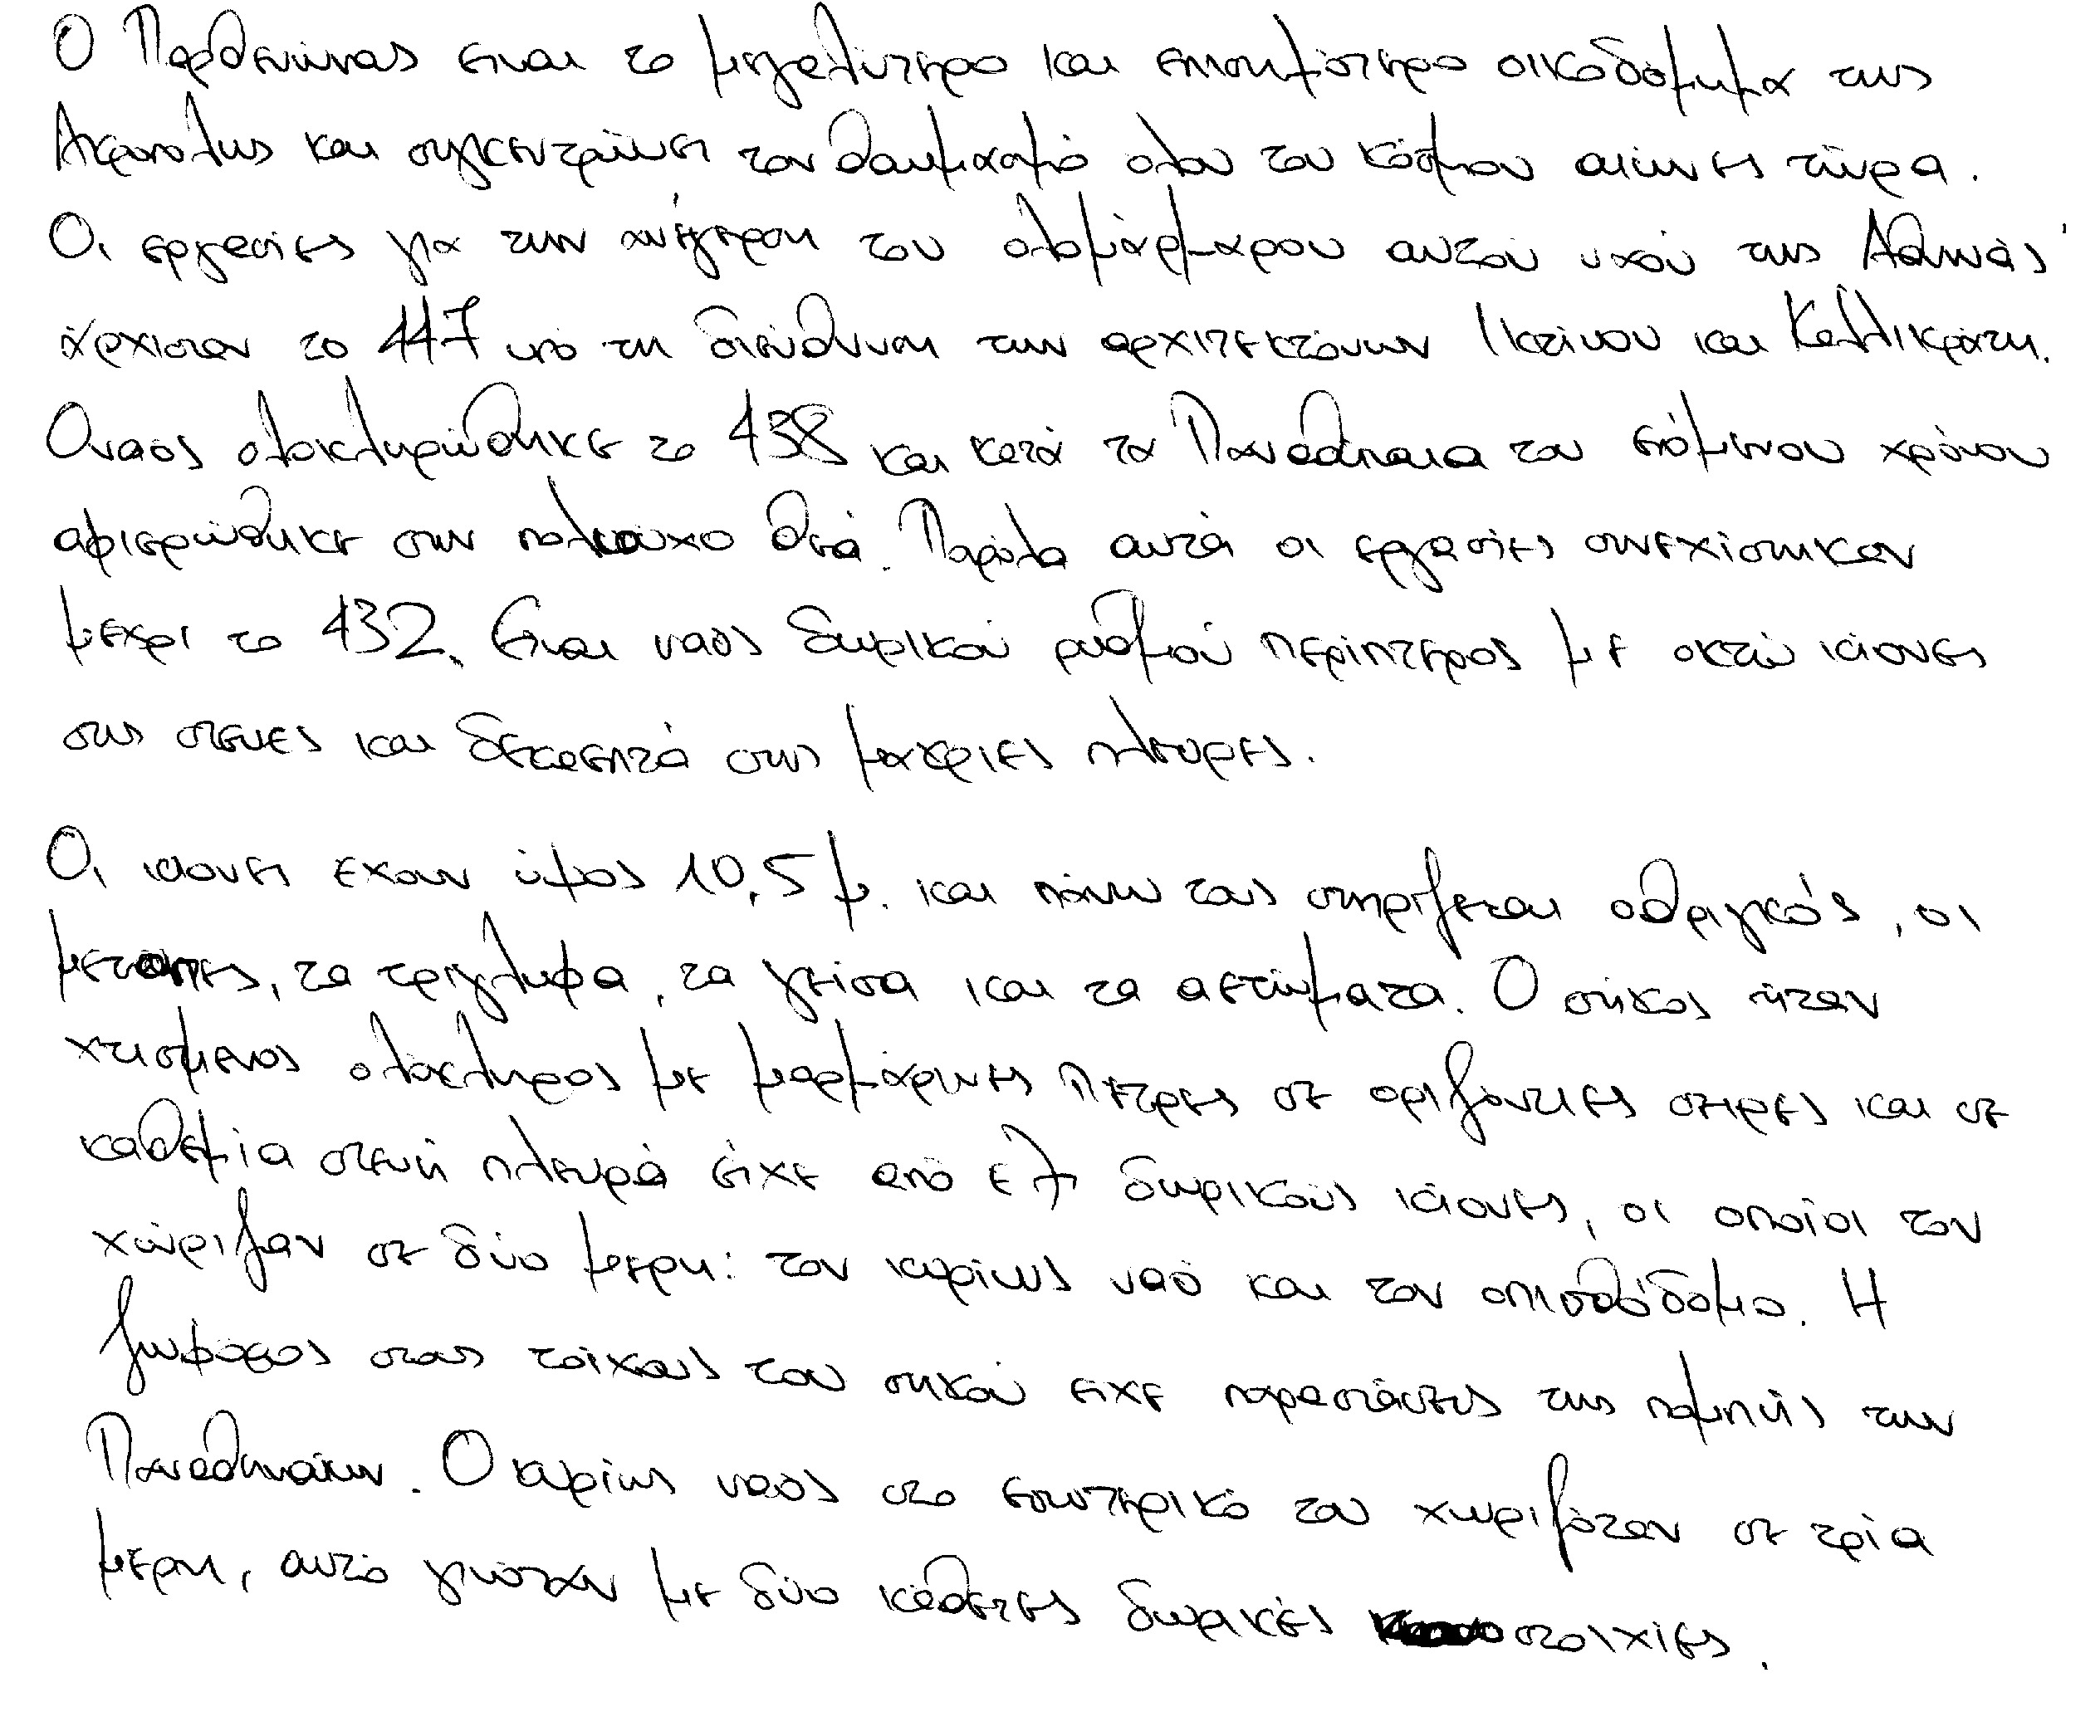 Ο Παρθενώνας είναι το μεγαλύτερο και επισημότερο οικοδόμημα της
Ακρόπολης και συγκεντρώνει τον θαυμασμό όλου του κόσμου αιώνες τώρα.
Οι εργασίες για την ανέγερση του ολομάρμαρου αυτού ναού της Αθηνάς
άρχισαν το 447 υπό τη διεύθυνση των αρχιτεκτόνων Ικτίνου και Καλλικράτη.
Ο ναός ολοκληρώθηκε το 438 και κατά τα Παναθήναια του επόμενου χρόνου
αφιερώθηκε στην πολιούχο θεά. Παρόλα αυτά οι εργασίες συνεχίστηκαν
μέχρι το 432. Είναι ναός δωρικού ρυθμού περίπτερος με οκτώ κίονες
στις στενές και δεκαεπτά στις μακριές πλευρές.
Οι κίονες έχουν ύψος 10,5 μ. και πάνω τους στηρίζεται ο θριγκός, οι
μετόπες, τα τρίγλυφα, τα γείσα και τα αετώματα. Ο σηκός ήταν
χτισμένος ολόκληρος με μαρμάρινες πέτρες σε οριζόντιες σειρές και σε
καθεμία στενή πλευρά είχε από έξι δωρικούς κίονες, οι οποίοι τον
χώριζαν σε δύο μέρη: τον κυρίως ναό και τον οπισθόδομο. Η
ζωφόρος στους τοίχους του σηκού είχε παραστάσεις της πομπής των
Παναθηναίων. Ο κυρίως ναός στο εσωτερικό του χωριζόταν σε τρία
μέρη, αυτό γινόταν με δύο κάθετες δωρικές στοιχίες.